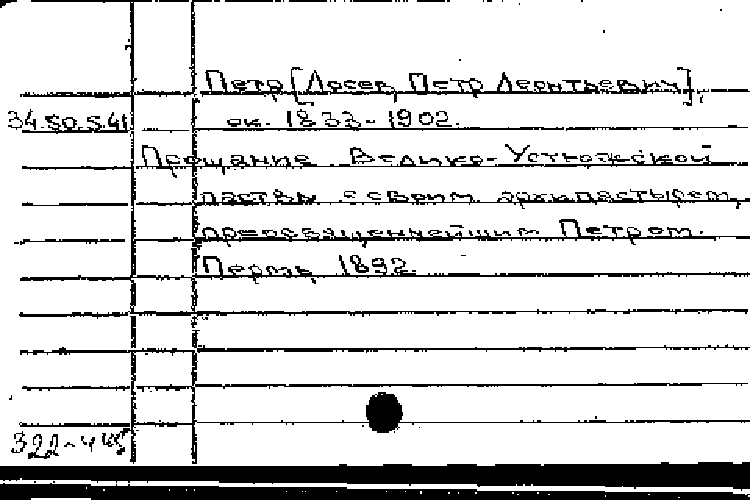 Петр [Лосев, Петр Леонтьевич],
34.50.5.41 ок. 1833-1902.
Прощание Велико-Устюжской
паствы с своим архипастырем,
преосвященнейшим Петром.
Пермь, 1892.
322-445